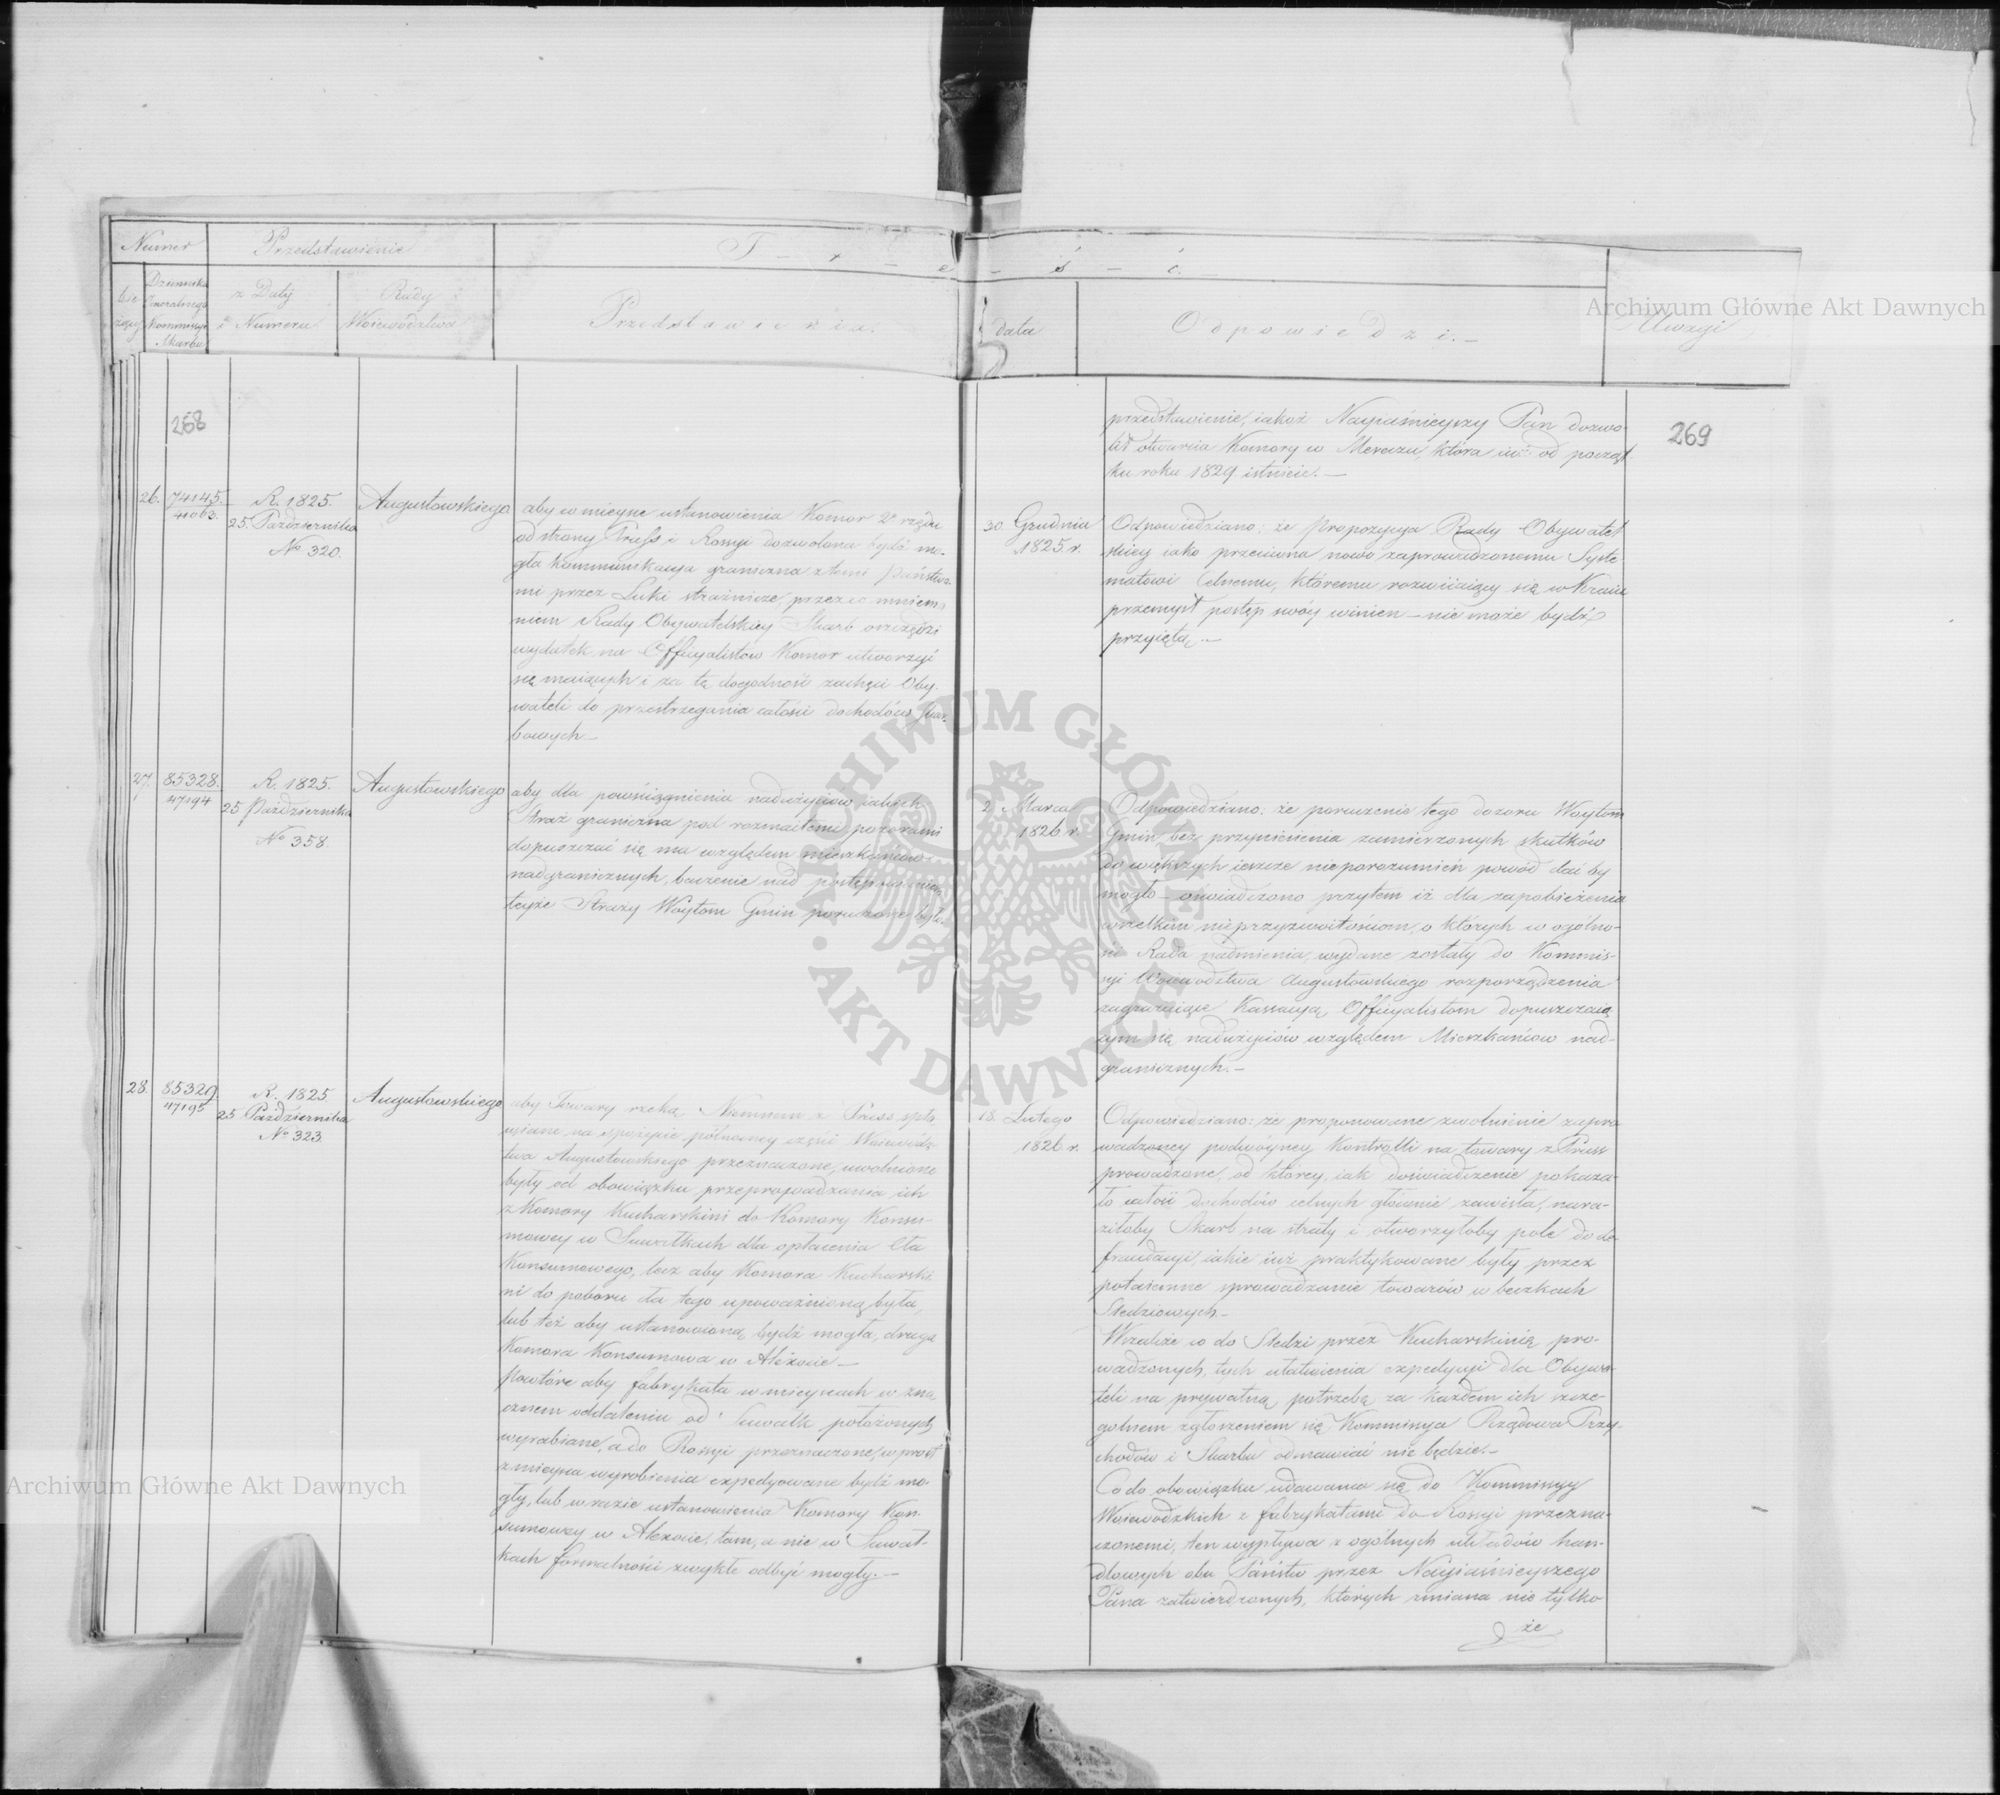 Numer
Przedstawienie
T - r - e - ś - ć. -
bie-
żący
Dziennika
Generalnego
Kommissyi
Skarbu
z Daty
i Numeru
Rady
Woiewództwa
Przedstawienia.
data
Odpowiedzi. -
Uwagi
Archiwum Główne Akt Dawnych
268
269
przedstawienie, iakoż Nayiaśnieyszy Pan dozwo-
lił otwarcia Komory w Mereczu, która iuż od począt
ku roku 1829 istnieie. —
26.
74145.
41063.
R. 1825.
25. Października
No 320.
Augustowskiego
aby w mieysce ustanowienia Komor 2o rzędu
od strony Pruss i Rossyi dozwolona bydź mo-
gła kommunikacya graniczna z temi Państwa-
mi przez Luki strażnicze, przez co mniema
niem Rady Obywatelskiey Skarb oszczędzi
wydatek na Officyalistów Komor utworzyć
się maiących i za tą dogodność zachęci Oby-
wateli do przestrzegania całości dochodów Skar-
bowych. —
30. Grudnia
1825. r.
Odpowiedziano: że propozycya Rady Obywatel
skiey iako przeciwna nowo zaprowadzonemu Syste-
matowi Celnemu, któremu rozwiiaiący się w Kraiu
przemysł postęp swóy winien — nie może bydź
przyiętą. —
27.
85328.
47194
R. 1825.
25 Października
No 358.
Augustowskiego
aby dla powściągnienia nadużyciow iakich
Straż graniczna pod rozmaitemi pozorami
dopuszczać się ma względem mieszkańcow
nadgranicznych, baczenie nad postępowaniem
teyże Straży Woytom Gmin poruczone było.
2 Marca
1826 r.
Odpowiedziano: że poruczenie tego dozoru Woytom
Gmin, bez przyniesienia zamierzonych skutków
do większych ieszcze nieporozumień powód dać by
mogło — oświadczono przytem iż dla zapobieżenia
wszelkim nieprzyzwoitościom, o których w ogólno-
ści Rada nadmienia, wydane zostały do Kommis-
syi Woiewództwa Augustowskiego rozporządzenia
zagrażaiące Kassacyą Officyalistom dopuszczaią
cym się nadużyciów względem Mieszkańcow nad-
granicznych. —
28.
85329.
47195
R. 1825
25 Października
No 323.
Augustowskiego
aby Towary rzeką Niemnem z Pruss spła
wiane na spożycie północney części Woiewódz
twa Augustowskiego przeznaczone, uwolnione
były od obowiązku przeprowadzania ich
z Komory Kucharskini do Komory Konsu-
mowey w Suwałkach dla opłacenia Cła
Konsumowego, lecz aby Komora Kucharski
ni do poboru cła tego upoważnioną była,
lub też aby ustanowioną bydź mogła, druga
Komora Konsumowa w Alexocie —
powtóre aby fabrykata w mieyscach w zna
cznem oddaleniu od Suwałk położonych
wyrabiane, a do Rossyi przeznaczone, w prost
z mieysca wyrobienia expedyowane bydź mo-
gły, lub w razie ustanowienia Komory Kon-
sumowey w Alexocie, tam, a nie w Suwał-
kach formalności zwykłe odbyć mogły. —
18. Lutego
1826 r.
Odpowiedziano: że proponowane zwolnienie zapro
wadzoney podwóyney Kontrolli na towary z Pruss
prowadzone, od którey, iak doświadczenie pokaza-
ło całość dochodów celnych głównie zawisła, nara-
ziłoby Skarb na straty i otworzyłoby pole do de
fraudacyi, iakie iuż praktykowane były przez
potaiemne sprowadzanie towarów w beczkach
Sledziowych. —
Wszakże co do Sledzi przez Kucharskinią pro-
wadzonych, tych ułatwienia expedycyi dla Obywa-
teli na prywatną potrzebę za każdem ich szcze-
gólnem zgłoszeniem się Kommissya Rządowa Przy-
chodów i Skarbu odmawiać nie będzie. —
Co do obowiązku udawania się do Kommissyy
Woiewódzkich z fabrykatami do Rossyi przezna-
czonemi, ten wypływa z ogólnych układów han-
dlowych obu Państw przez Nayiaśnieyszego
Pana zatwierdzonych, których zmiana nie tylko
że
ARCHIWUM GŁÓWNE
AKT DAWNYCH
Archiwum Główne Akt Dawnych